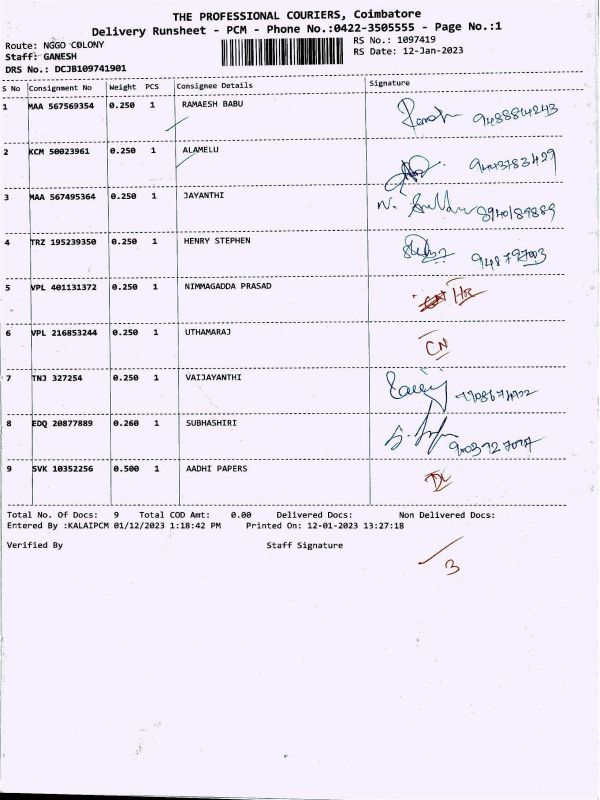 THE PROFESSIONAL COURIERS, Coimbatore
Delivery Runsheet - PCM - Phone No.:0422-3505555 - Page No.:1
Route: NGGO COLONY RS No.: 1097419
Staff: GANESH RS Date: 12-Jan-2023
DRS No.: DCJB109741901
S No Consignment No Weight PCS Consignee Details Signature
1 MAA 567569354 0.250 1 RAMAESH BABU
2 KCM 50023961 0.250 1 ALAMELU 9443783429
3 MAA 567495364 0.250 1 JAYANTHI N. 8940189889
4 TRZ 195239350 0.250 1 HENRY STEPHEN
5 VPL 401131372 0.250 1 NIMMAGADDA PRASAD
6 VPL 216853244 0.250 1 UTHAMARAJ CN
7 TNJ 327254 0.250 1 VAIJAYANTHI
8 EDQ 20877889 0.260 1 SUBHASHIRI
9 SVK 10352256 0.500 1 AADHI PAPERS DL
Total No. Of Docs: 9 Total COD Amt: 0.00 Delivered Docs: Non Delivered Docs:
Entered By :KALAIPCM 01/12/2023 1:18:42 PM Printed On: 12-01-2023 13:27:18
Verified By Staff Signature
3